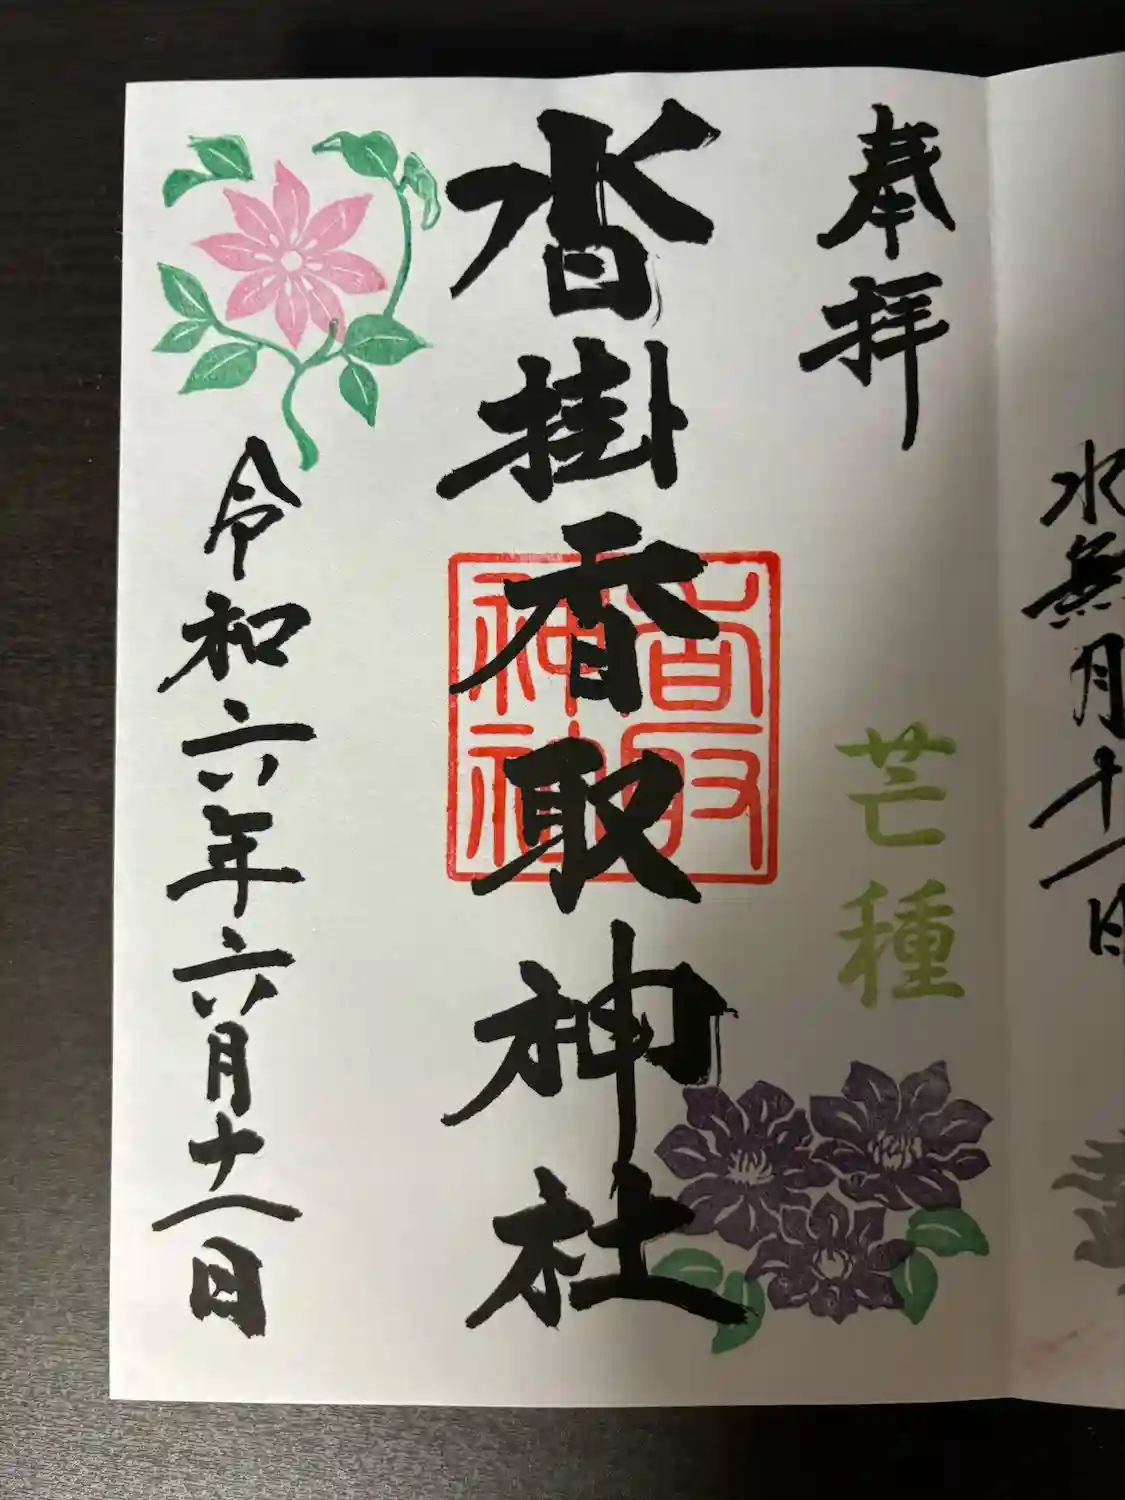 水無月十一日
奉拝
芒種
沓掛香取神社
香取神社
令和六年六月十一日